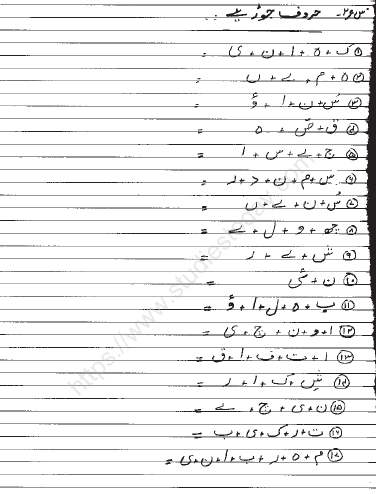 س۲۶۔ حروف جوڑیے :
① ک + ہ + ا + ن + ی =
② ہ + م + یے + ں =
③ سُ + ن + ا + ؤ =
④ ق + صّ + ہ =
⑤ ج + یے + س + ا =
⑥ س + م + ن + د + ر =
⑦ سُ + ن + یے + ں =
⑧ چھ + و + ل + یے =
⑨ ش + یے + ر =
⑩ ن + ئی =
⑪ ب + ہ + ل + ا + ؤ =
⑫ ا + و + ن + چ + ی =
⑬ ا + ت + ف + ا + ق =
⑭ شِ + ک + ا + ر =
⑮ ن + ی + چ + ے =
⑯ ت + ر + ک + ی + ب =
⑰ م + ہ + ر + ب + ا + ن + ی =
https://www.studiestoday.com